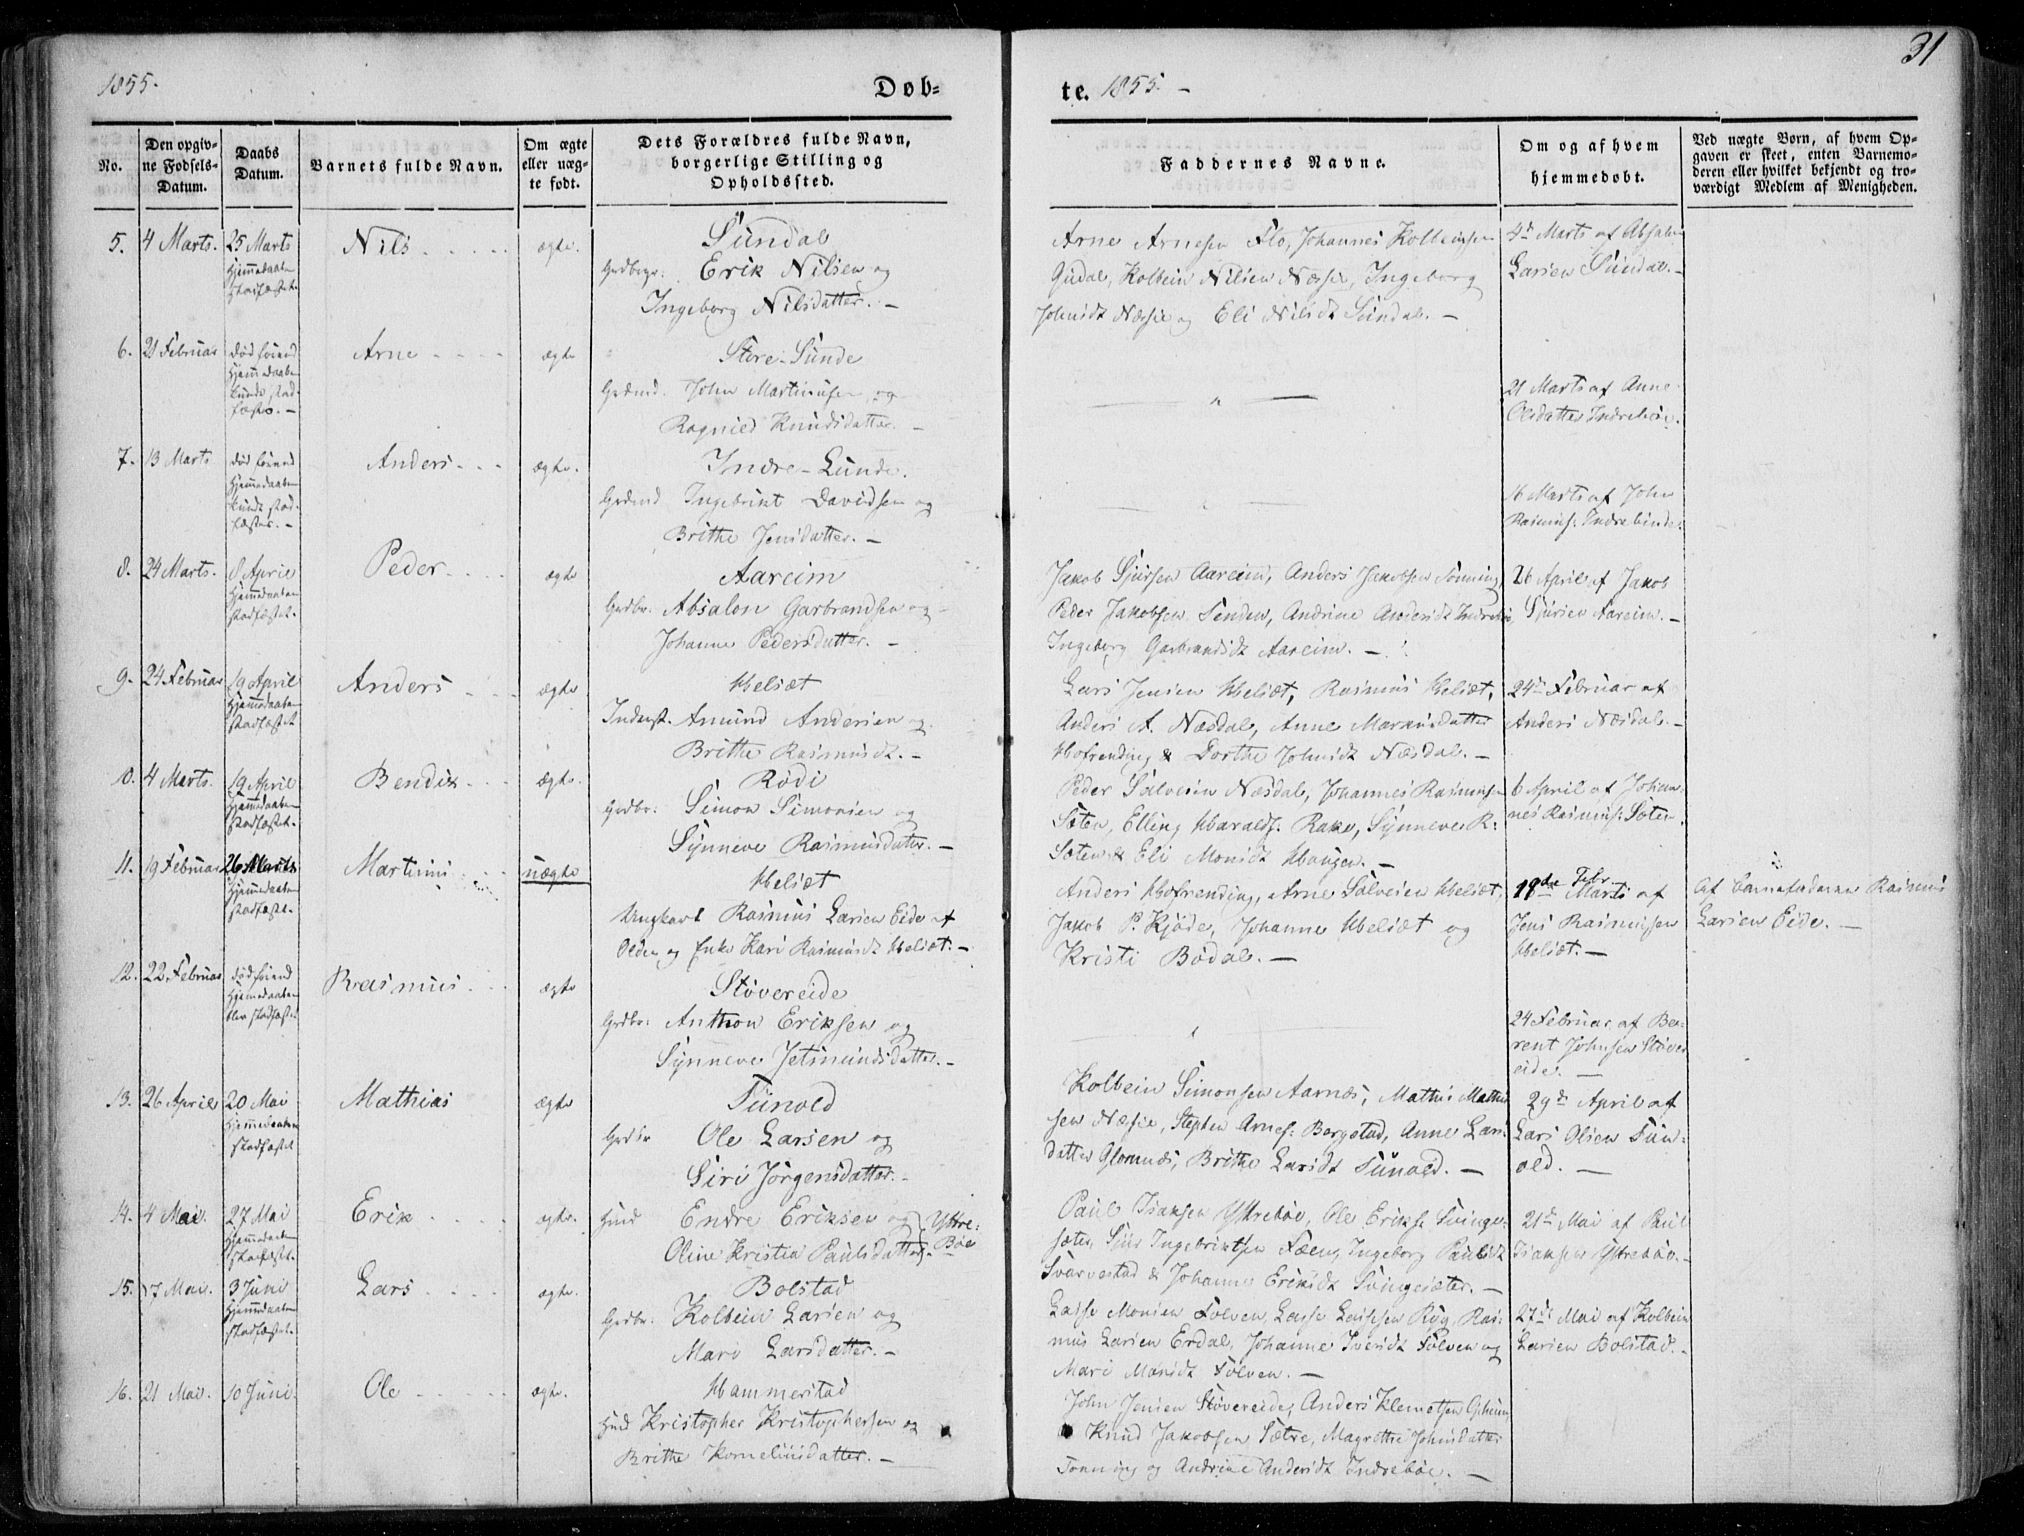 31
1855.
Døb=
te. 1855. –
No.
Den opgiv-
ne Fødsels-
Datum.
Daabs
Datum.
Barnets fulde Navn.
Om ægte
eller uæg-
te født.
Dets Forældres fulde Navn,
borgerlige Stilling og
Opholdssted.
Faddernes Navne.
Om og af hvem
hjemmedøbt.
Ved uægte Børn, af hvem Op-
gaven er skeet, enten Barnemo-
deren eller hvilket bekjendt og tro-
værdigt Medlem af Menigheden.
5. 4 Marts. 25 Marts
Hjemmedaaben
stadfæstet.
Nils
ægte.
Sundal
Grdbrgr: Erik Nilsen og
Ingeborg Nilsdatter. –
Arne Arnesen Flo, Johannes Kolbeinsen
Gudal, Kolbein Nilsen Næssie, Ingeborg
Johnsdt Næssie og Eli Nilsdt Sundal. –
4de Marts af Absalon
Larsen Sundal. –
6. 21 Februar
død førend
Hjemmedaaben
kunde stad-
fæstes. –
Arne
ægte
Store-Sunde
Grdmd. John Martinusen og
Ragnild Knudsdatter. –
21 Marts af Anne
Olsdatter Indrebøe.
7. 13 Marts
død førend
Hjemmedaaben
kunde stad-
fæstes. –
Anders
ægte.
Indre-Lunde.
Grdmd Ingebrikt Davidsen og
Brithe Jensdatter. –
16 Marts af John
Rasmus: Indrelunde.
8. 24 Marts. 8 April
Hjemmedaaben
stadfæstet.
Peder
ægte
Aareim
Grdbr: Absalon Garbrandsen og
Johanne Pedersdatter. –
Jakob Sjursen Aareim, Anders Jakobsen Tonning,
Peder Jakobsen Senden, Andrine Andersdt Indrebøe,
Ingeborg Garbrandsdt Aareim. –
26 April af Jakob
Sjursen Aareim. –
9. 24 Februar 19 April
Hjemmedaaben
stadfæstet
Anders
ægte
Helsæt
Inderst. Amund Andersen og
Brithe Rasmusdt. –
Lars Jensen Helsæt, Rasmus Helsæt,
Anders A. Næsdal, Anne Markusdatter
Hofrending & Dorthe Johnsdt Næsdal. –
24de Februar af
Anders Næsdal. –
10. 4 Marts. 19 April
Hjemmedaaben
stadfæstet.
Bendix
ægte.
Rødi
Grdbr: Simon Simonsen og
Synneve Rasmusdatter. –
Peder Salvesen Næsdal, Johannes Rasmusen
Sæten, Elling Haralds: Rake, Synneve R:
Sæten & Eli Monsdt Haugen. –
6 April af Johan-
nes Rasmus: Sæten.
11. 19 Februar 26 Marts
Hjemmedaaben
stadfæstet.
Martinus
uægte
Helsæt
Ungkarl Rasmus Larsen Eide af
Olden og Enke Kari Rasmusdt Helsæt. –
Anders Hofrending, Arne Salvesen Helsæt,
Jakob P. Kjøde, Johanne Helsæt og
Kristi Bødal. –
19de Febr Marts af
Jens Rasmusen
Helsæt. –
Af Barnefaderen Rasmus
Larsen Eide. –
12. 22 Februar
død førend
Hjemmedaaben
blev stadfæstet
Rasmus
ægte
Støvereide
Grdbr: Anthon Eriksen og
Synneve Jetmundsdatter. –
24 Februar af Be-
rent Johnsen Støver
eide. –
13. 26 April 20 Mai
Hjemmedaaben
stadfæstet
Mathias
ægte
Tunold
Grdbr Ole Larsen og
Siri Jørgensdatter. –
Kolbein Simonsen Aarnæs, Mathis Mathi
sen Næssie, Stephen Arnes: Bergstad, Anne Lars
datter Glomnæs, Brithe Larsdt Tunold. –
29de April af
Lars Olsen Tun-
old. –
14. 4 Mai. 27 Mai
Hjemmedaaben
stadfæstet.
Erik
ægte.
Huusmd Endre Eriksen og
Oline Kristin Paulsdatter.
Yttre-
Bøe
Paul Isaksen Yttrebøe, Ole Eriks. Svinge-
sæter, Sjur Ingebrigtsen Faen, Ingeborg Paulsdt
Svarvestad & Johanne Eriksdt Svingesæter. –
21de Mai af Paul
Isaksen Yttrebøe. –
15. 17 Mai. 3 Juni
Hjemmedaaben
stadfæstet.
Lars
ægte.
Bolstad
Grdbr: Kolbein Larsen og
Mari Larsdatter. –
Lasse Monsen Følven, Lasse Lassesen Ryg, Ras-
mus Larsen Erdal, Johanne Iversdt Følven og
Mari Monsdt Følven. –
27de Mai af Kolbein
Larsen Bolstad. –
16. 21 Mai. 10 Juni.
Ole
ægte.
Hammerstad
Kristopher Kristophersen og
Brithe Korneliusdatter. –
John Jensen Støvereide, Anders Klemetsen
Knud Jakobsen Sætre, Magrethe Johnsdatter
Tonning og Andrine Andersdt Indrebøe. –